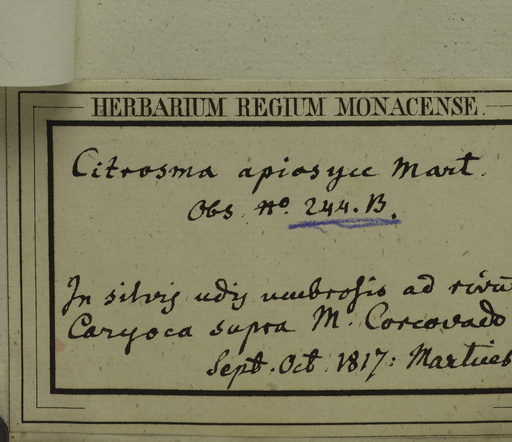 HERBARIUM REGIUM MONACENSE.
Citrosma apiosyce Mart.
Obs. No. 244. B.
In silvis udis umbrosis ad rivum
Caryoca supra M. Corcovado
Sept. Oct. 1817: Martius